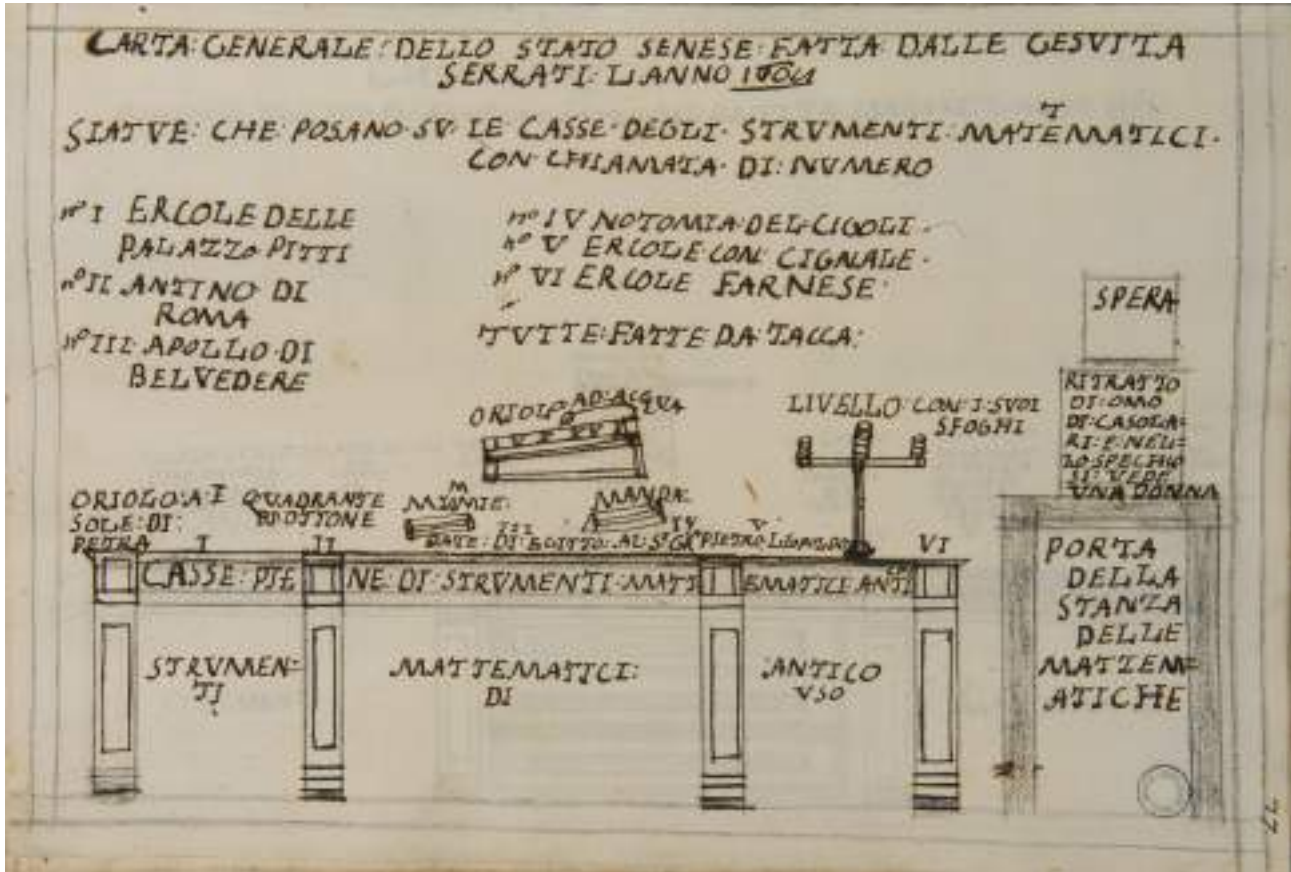 CARTA:GENERALE:DELLO STATO SENESE:FATTA DALLE GESVITA
SERRATI: L:ANNO
STATVE: CHE POSANO·SV· LE CASSE·DEGLI· STRVMENTI·MATEMATICI·
T
CON·CHIAMATA· DI: NVMERO
nº I ERCOLE DELLE
PALAZZO·PITTI
nº II ANTINO DI
ROMA
nº III·APOLLO·DI
BELVEDERE
nº IV NOTOMIA·DEL·CIGOLI·
nº V ERCOLE·CON· CIGNALE·
nº VI ERCOLE FARNESE·
TVTTE:FATTE DA TACCA:
SPERA
RITRATTO
DI:OMO
DI:CASOLA=
RI: E NEL=
LO SPECHIO
SI: VEDE
VNA DONNA
ORIOLO AD:ACQVA
LIVELLO·CON·I·SVOI
SFOGHI
ORIOLO:A·
SOLE:DI:
PIETRA
QVADRANTE
DI OTTONE
M
MIOMIE:
MANDA=
DATE:DI:EGITTO:AL:Sº GR PIETRO LEOPOLDO
I
II
III
IV
V
VI
CASSE:PIE NE:DI:STRVMENTI:MATT EMATICI:ANTI
STRVMEN=
TI
MATTEMATICI:
DI
ANTICO
VSO
PORTA
DELLA
STANZA
DELLE
MATTEM=
ATICHE
77